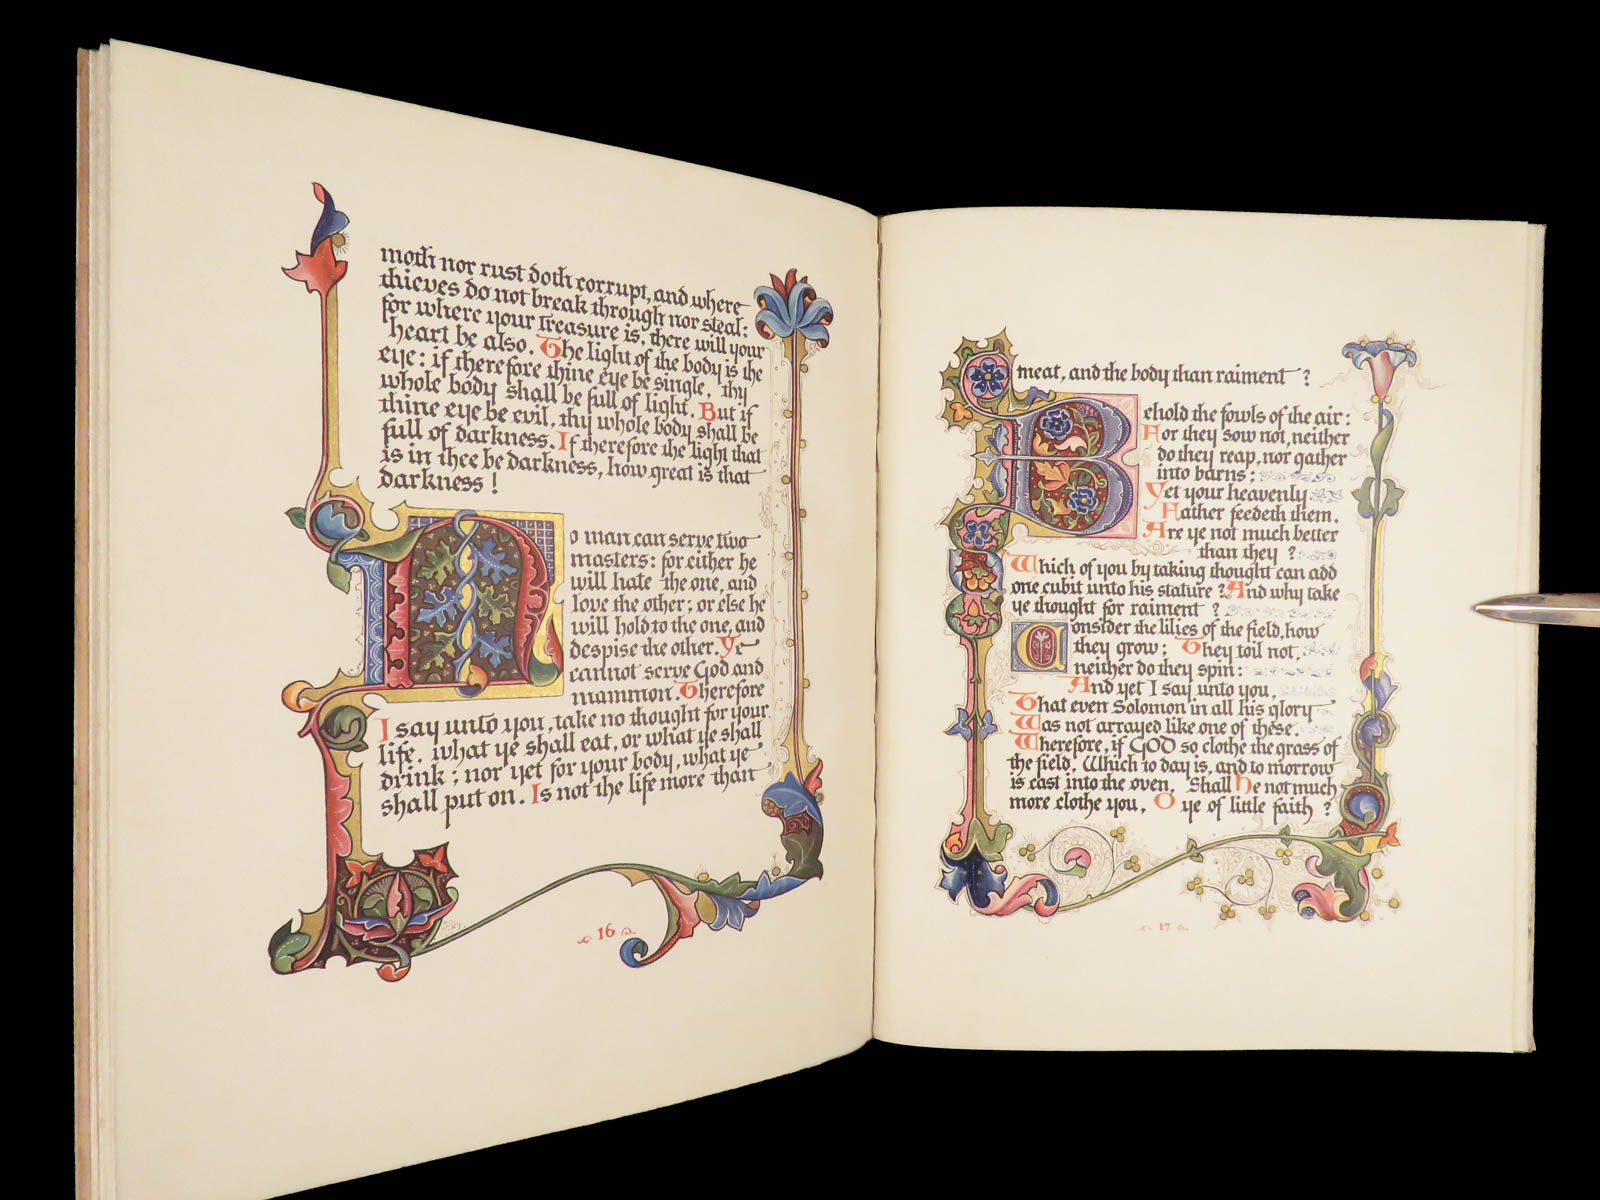 moth nor rust doth corrupt, and where
thieves do not break through nor steal:
for where your treasure is, there will your
heart be also. The light of the body is the
eye: if therefore thine eye be single, thy
whole body shall be full of light. But if
thine eye be evil, thy whole body shall be
full of darkness. If therefore the light that
is in thee be darkness, how great is that
darkness!
No man can serve two
masters: for either he
will hate the one, and
love the other; or else he
will hold to the one, and
despise the other. Ye
cannot serve God and
mammon. Therefore
I say unto you, take no thought for your
life, what ye shall eat, or what ye shall
drink; nor yet for your body, what ye
shall put on. Is not the life more than
16
meat, and the body than raiment?
Behold the fowls of the air:
For they sow not, neither
do they reap, nor gather
into barns;
Yet your heavenly
Father feedeth them.
Are ye not much better
than they?
Which of you by taking thought can add
one cubit unto his stature? And why take
ye thought for raiment?
Consider the lilies of the field, how
they grow; They toil not,
neither do they spin:
And yet I say unto you,
That even Solomon in all his glory
Was not arrayed like one of these.
Wherefore, if GOD so clothe the grass of
the field, Which to day is, and to morrow
is cast into the oven, Shall He not much
more clothe you, O ye of little faith?
17